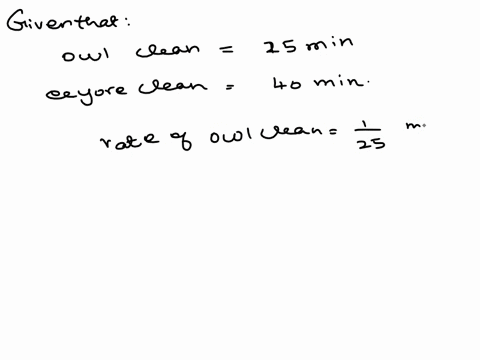 Given that:
owl clean = 25 min
eeyore clean = 40 min.
rate of owl clean = 1/25 m